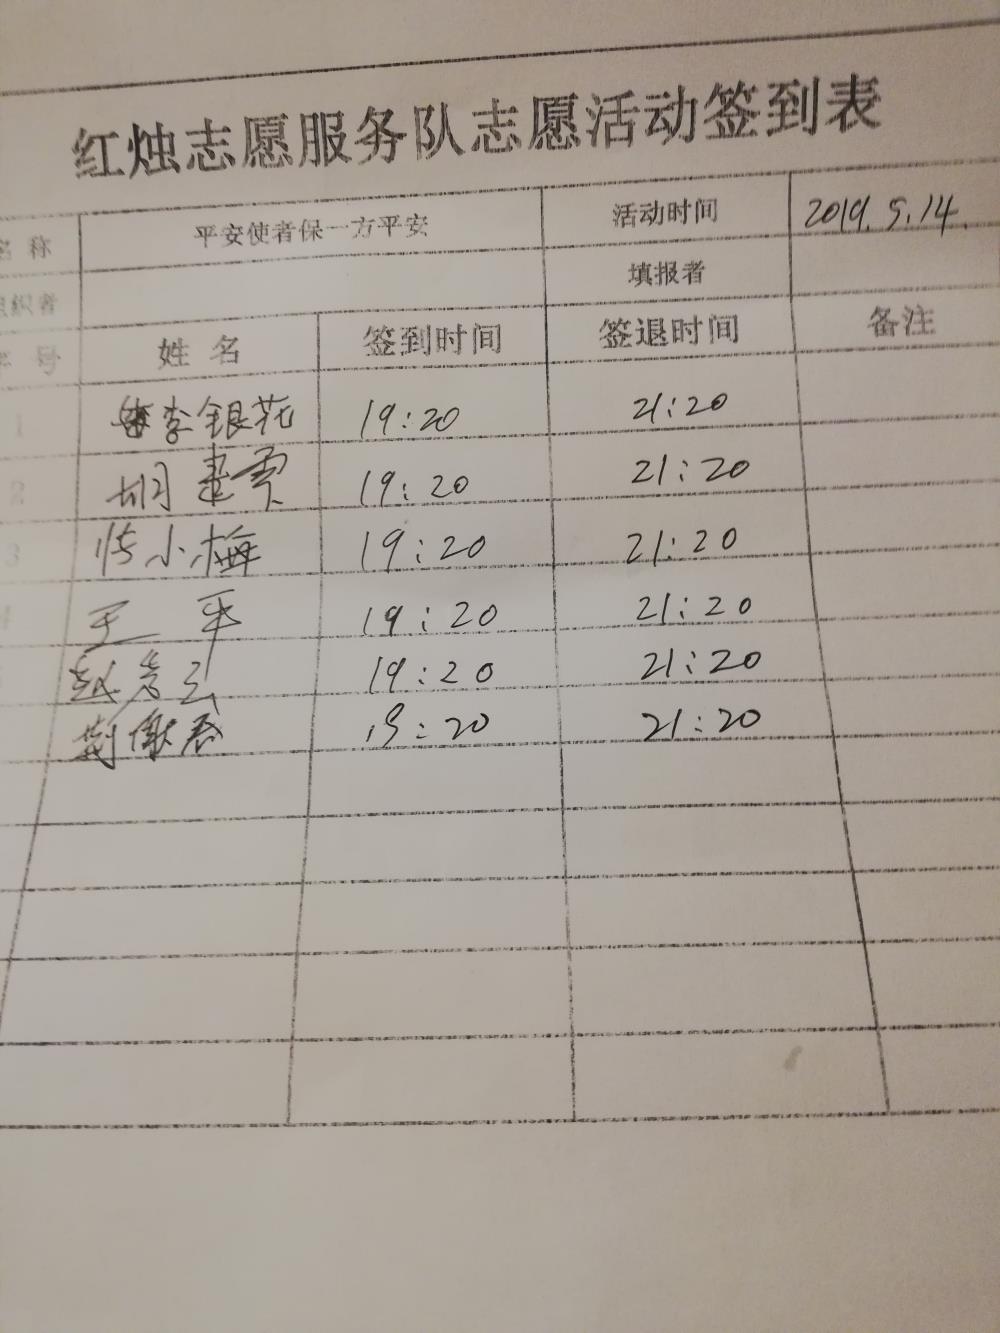 红烛志愿服务队志愿活动签到表
名 称 平安使者保一方平安 活动时间 2019.5.14.
组织者 填报者
序 号 姓 名 签到时间 签退时间 备注
1 李银花 19:20 21:20
2 胡建雲 19:20 21:20
3 张小梅 19:20 21:20
4 王 平 19:20 21:20
赵 19:20 21:20
荆 19:20 21:20